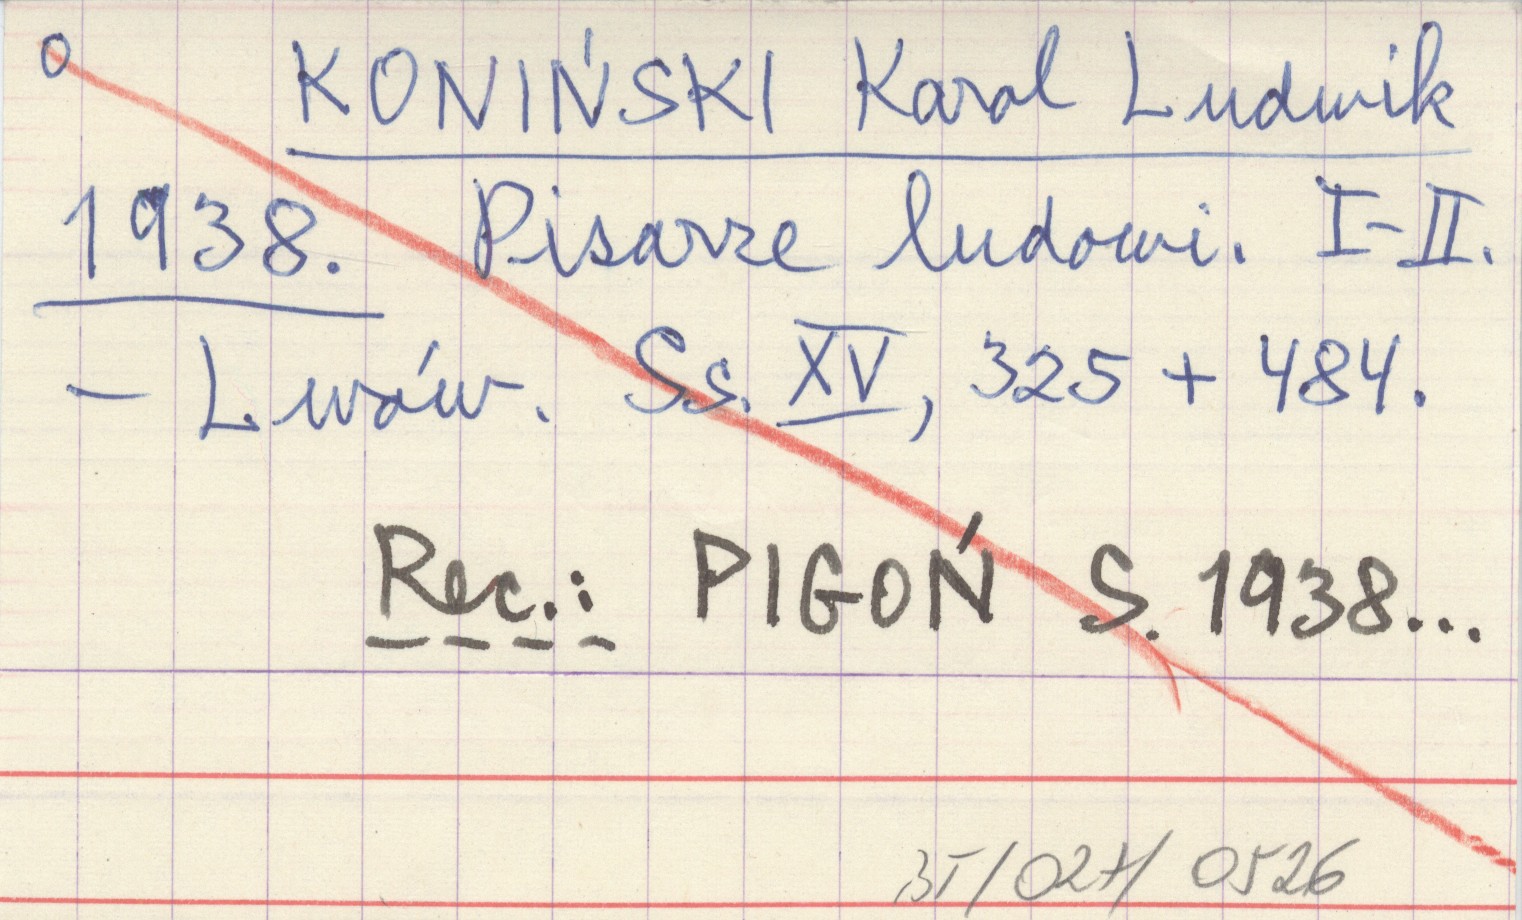 o KONIŃSKI Karol Ludwik
1938. Pisarze ludowi. I-II.
- Lwów. Ss. XV, 325 + 484.
Rec.: PIGOŃ S. 1938...
0526